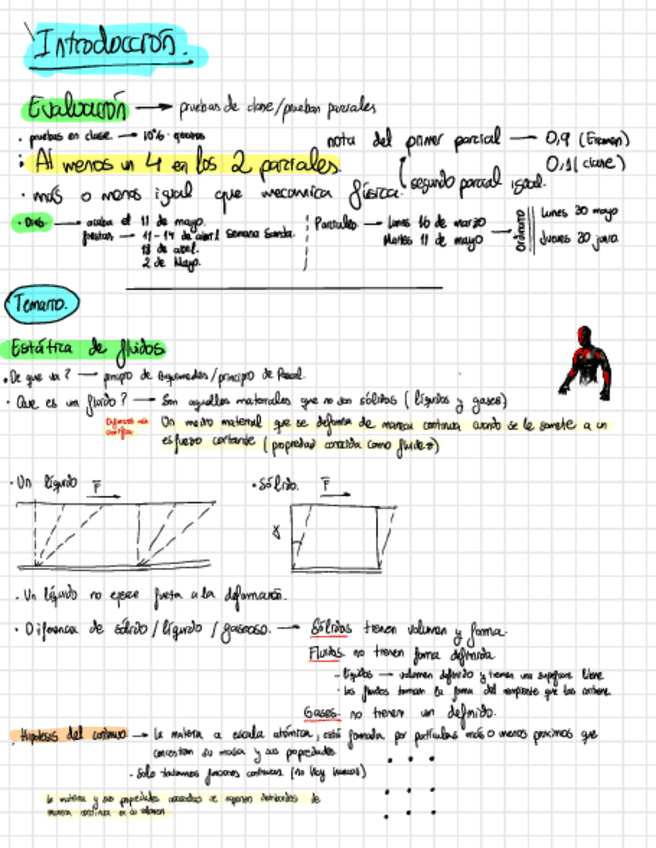 Introducción.
Evaluación → pruebas de clase/pruebas parciales
· pruebas en clase → 10%
nota del primer parcial — 0,9 (Examen)
: Al menos un 4 en los 2 parciales.
0,1 (clase)
segundo parcial igual.
· más o menos igual que mecanica física.
· Dias → acaba el 11 de mayo.
fiestas → 11-14 de abril semana santa.
18 de abril.
2 de Mayo.
Parciales → lunes 16 de marzo
Martes 11 de mayo
Ordinario
lunes 30 mayo
Jueves 30 junio
Temario.
Estática de fluidos
· De que va? → principio de Arquimedes/principio de Pascal.
· Que es un fluido? → Son aquellos materiales que no son sólidos (líquidos y gases)
Definición más científica
Un medio material que se deforma de manera continua cuando se le somete a un
esfuerzo cortante (propiedad conocida como fluidez)
· Un líquido F
· Sólido. F
γ
· Un líquido no ejerce fuerza a la deformación.
· Diferencia de sólido/líquido/gaseoso. → Sólidos tienen volumen y forma.
Fluidos no tienen forma definida
- líquidos → volumen definido y tienen una superficie libre
· los fluidos toman la forma del recipiente que los contiene
Gases no tienen un definido.
. Hipotesis del continuo → la materia a escala atómica, está formada por partículas más o menos proximas que
concentran su masa y sus propiedades
· Solo tratamos funciones continuas (no hay huecos)
la materia y sus propiedades asociadas se suponen distribuidas de
manera continua en su volumen